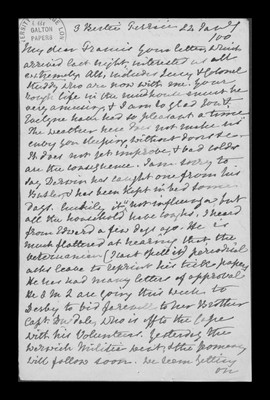 GALTON
PAPERS
3 Bertie Terrace 22 Jan
/00
My dear Francis Your letter, which
arrived last night, interested us all
extremely. All, includes Lucy & Colonel
Studdy who are now with me. Your
rough life in the mud house must be
very amusing & I am so glad you &
Evelyne have had so pleasant a time
The weather here does not make us
envy you sleeping without doors
It does not get improve, & bad colds
are the consequence. I am sorry to
say Darwin has caught one from his
& has been kept in bed some
days. Luckily it is not influenza but
all the household have coughs. I heard
from Edward a few days ago. He is
much flattered at hearing that the
Veterinarian (I can't spell it) periodical
asks leave to reprint his little paper
He has had many letters of approval
He & M. L. are going this week to
Derby to bid farewell to her Brother
Capt. who is off to the Cape
with his Volunteers. Yesterday the
Warwick Militia went, & the Yeomanry
will follow soon. We seem getting
on